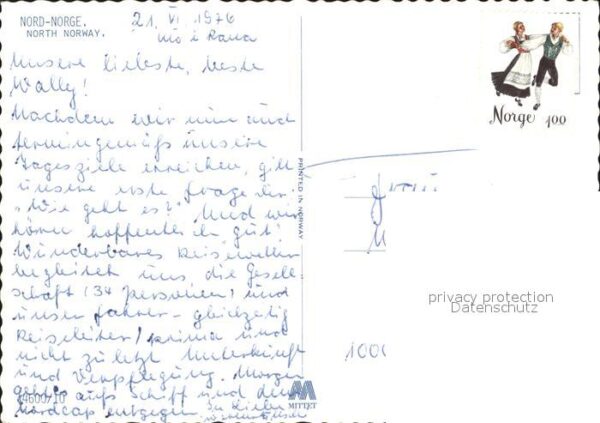 NORD-NORGE.
NORTH NORWAY.
21. VI 1976
Mo i Rana
Unsere liebeste, beste
Wally!
Nachdem wir nun und
termingemäß unsere
Tagesziele erreichen, gilt
unsere erste Frage dir
"Wie geht es?" Und wir
hören hoffentlich gut!
Wunderbares Reisewetter
begleitet uns die Gesell-
schaft (34 Personen) und
unser Fahrer - gleichzeitig
Reiseleiter, prima und
nicht zuletzt Unterkunft
und Verpflegung. Morgen
geht's aufs Schiff und dem
Nordcap entgegen. In Liebe
PRINTED IN NORWAY
Norge 100
privacy protection
Datenschutz
14600/10
MITTET